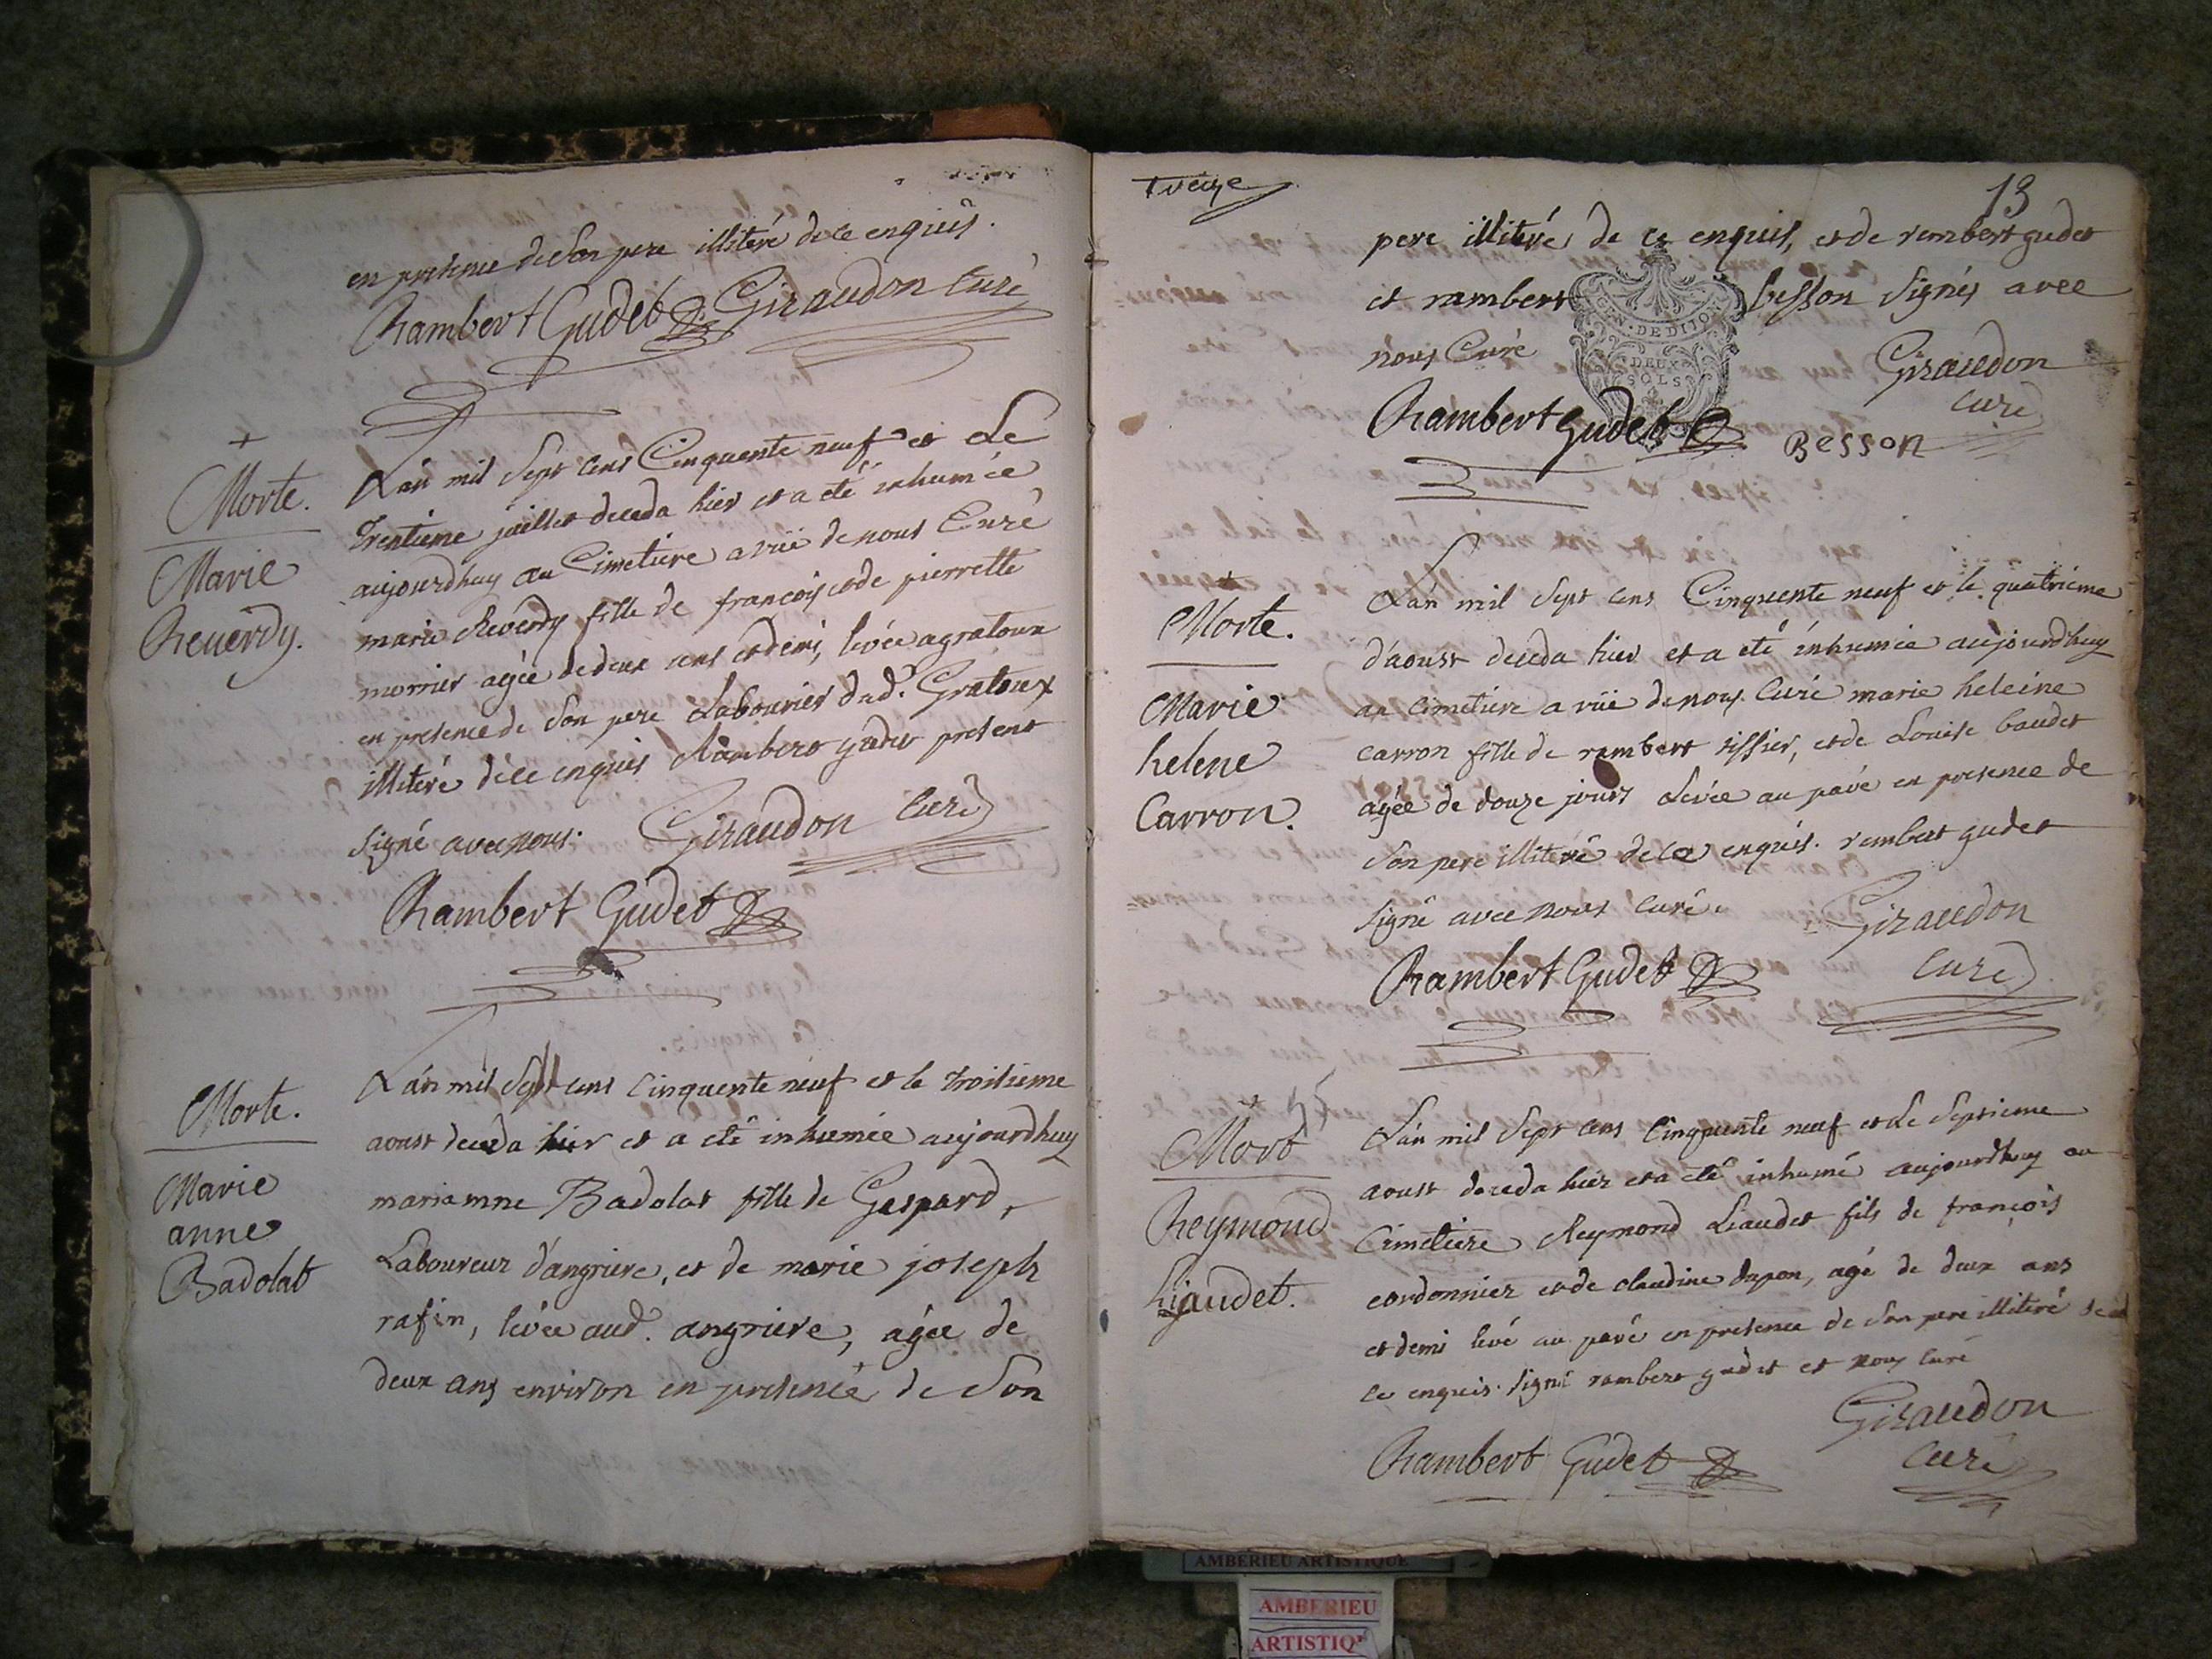 en presence de son pere illiteré de ce enquis.
Rambert Gudet Giraudon curé
+
Morte.
Marie
Reuerdy.
L'an mil sept cens Cinquente neuf et Le
trentieme juillet deceda hier et a eté inhumée
aujourdhuy au Cimetiere a vüe de nous Curé
marie Reverdy fille de françois et de pierrette
morrier agée de deux ans et demi, levée a gratoux
en presence de son pere Labourier dud. Gratoux
illiteré de ce enquis Rambert gudet present
signé avec nous. Giraudon curé
Rambert Gudet
Morte.
Marie
anne
Badolat
L'an mil sept cens cinquente neuf et le troisieme
aoust deceda hier et a eté inhumée aujourdhuy
marianne Badolat fille de Gaspard,
Laboureur d'angriere, et de marie joseph
rafin, levée aud. angriere, agée de
deux ans environ en presence de son
treize
13
pere illiteré de ce enquis, et de rembert gudet
et rambert besson signés avec
nous Curé
GEN·DE DIJON
DEUX
SOLS
Giraudon
curé
Rambert Gudet
Besson
Morte.
Marie
helene
Carron.
L'an mil sept cens Cinquente neuf et le quatrieme
d'aoust deceda hier et a eté inhumée aujourdhuy
au cimetiere a vüe de nous Curé marie heleine
carron fille de rambert tissier, et de Louise baudet
agée de douze jours Levée au pavé en presence de
son pere illiteré de ce enquis. rembert gudet
signé avec nous curé.
Giraudon
curé
Rambert Gudet
Mort
Reymond
Liaudet.
L'an mil sept cens Cinquente neuf et Le septieme
aoust deceda hier et a eté inhumé aujourdhuy au
Cimetiere Reymond Liaudet fils de françois
cordonnier et de claudine dupon, agé de deux ans
et demi levé au pavé en presence de son pere illiteré de
ce enquis. signé rambert gudet et nous curé
Giraudon
curé
Rambert Gudet
AMBERIEU ARTISTIQUE
AMBERIEU
ARTISTIQ